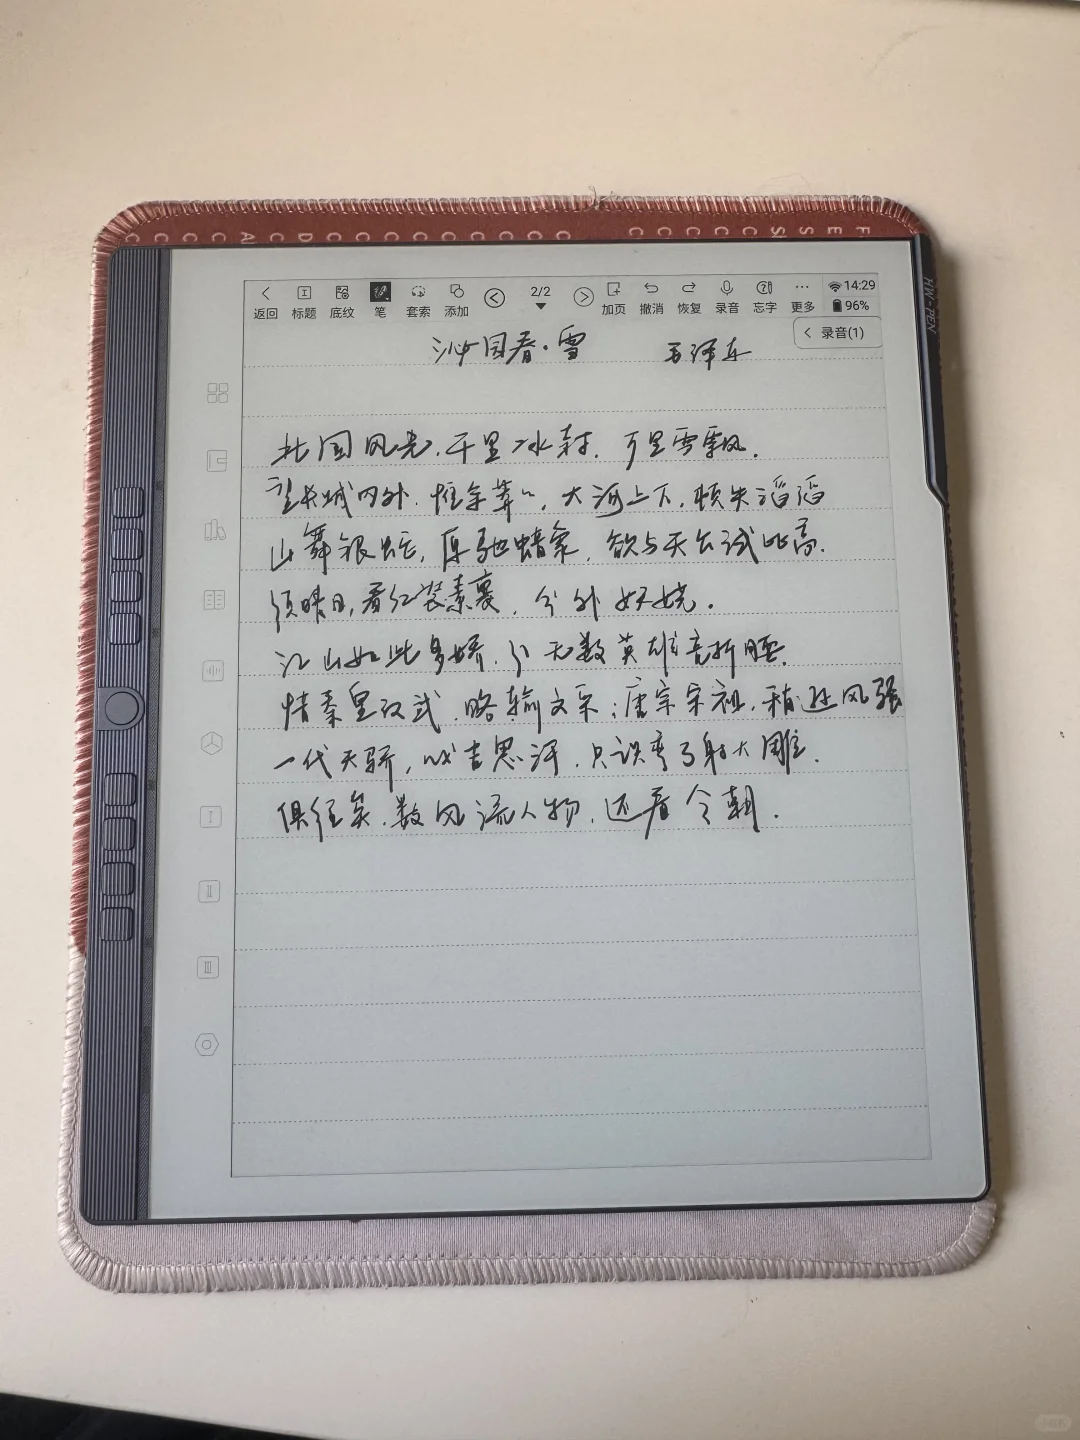 C C C C A C D C C C C C C C C C C C C C C S S E E F
HW-PEN
返回 标题 底纹 笔 套索 添加 2/2 加页 撤消 恢复 录音 忘字 更多 14:29 96%
录音(1)
沁园春·雪 毛泽东
北国风光,千里冰封,万里雪飘.
望长城内外,惟余莽〃,大河上下,顿失滔滔
山舞银蛇,原驰蜡象,欲与天公试比高.
须晴日,看红装素裹,分外妖娆.
江山如此多娇,引无数英雄竞折腰.
惜秦皇汉武,略输文采;唐宗宋祖,稍逊风骚
一代天骄,成吉思汗,只识弯弓射大雕.
俱往矣,数风流人物,还看今朝.